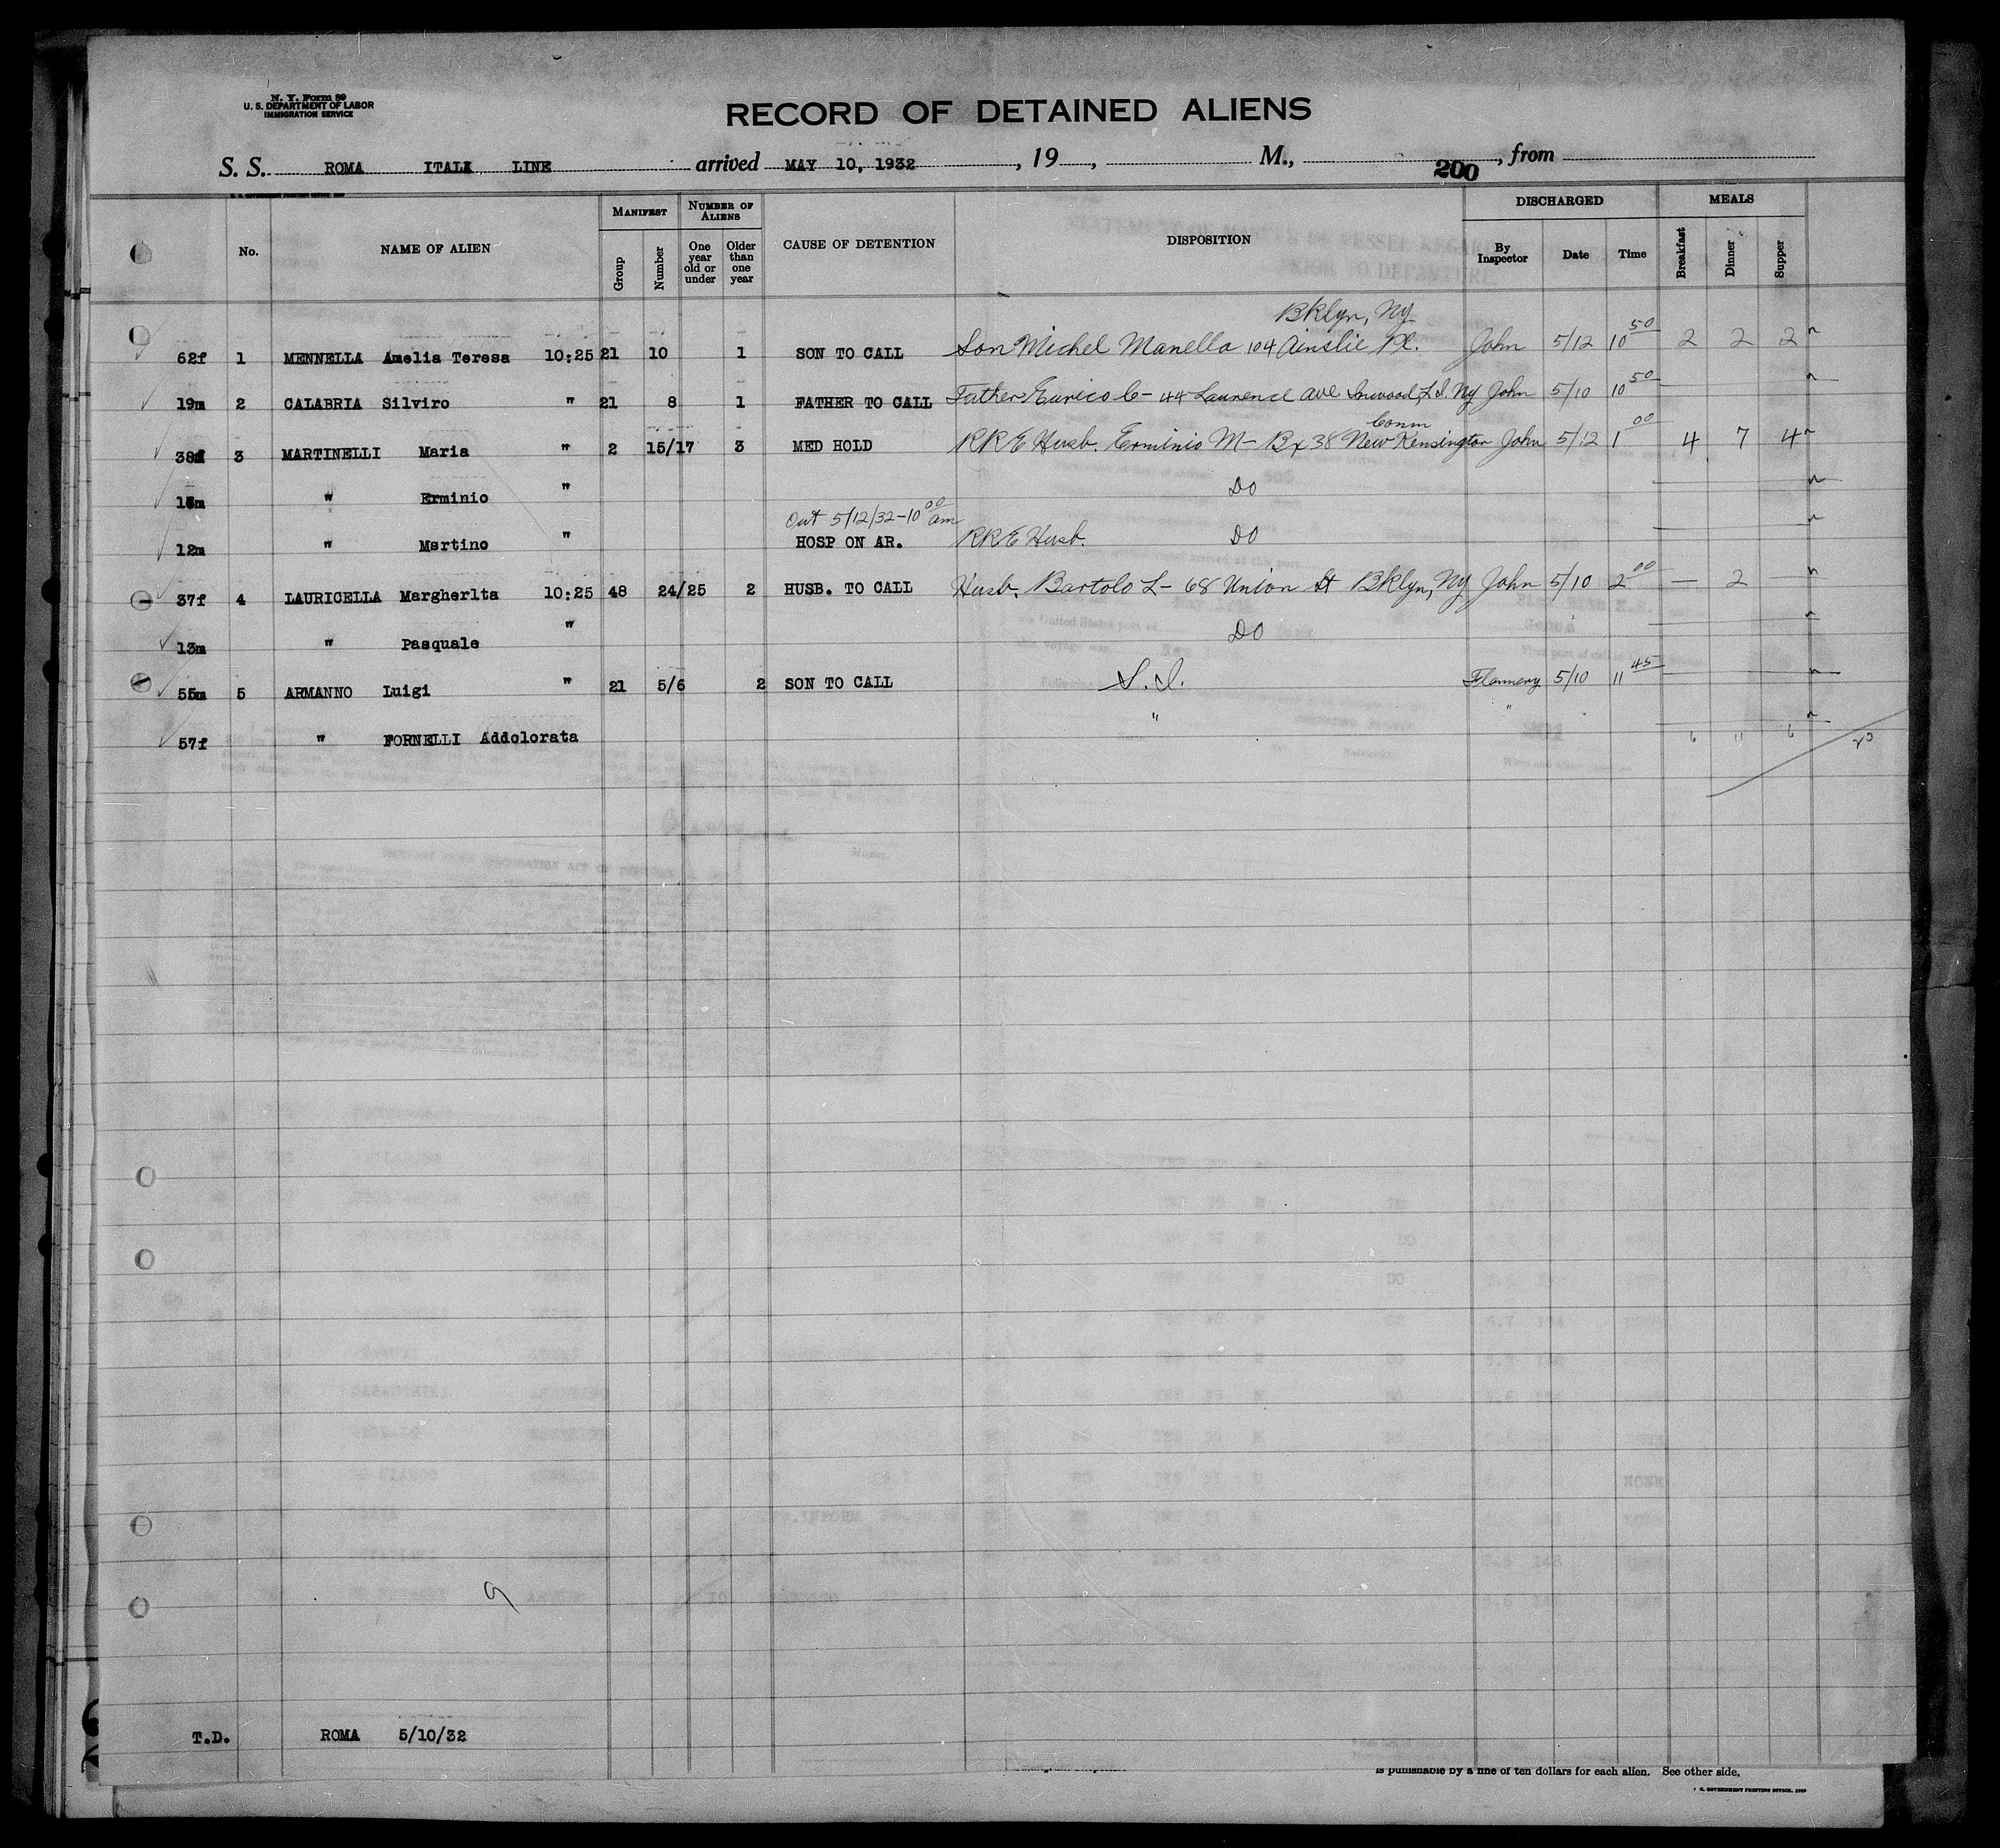 N. Y. Form 89
U. S. DEPARTMENT OF LABOR
IMMIGRATION SERVICE
RECORD OF DETAINED ALIENS
S. S. ROMA ITALI LINE arrived MAY 10, 1932, 19 , M., 200, from
No. NAME OF ALIEN MANIFEST Group Number NUMBER OF ALIENS One year old or under Older than one year CAUSE OF DETENTION DISPOSITION DISCHARGED By Inspector Date Time MEALS Breakfast Dinner Supper
Bklyn, Ny
62f 1 MENNELLA Amelia Teresa 10:25 21 10 1 SON TO CALL Son Michel Manella 104 Ainslie Pl. John 5/12 10 50 2 2 2
19m 2 CALABRIA Silviro " 21 8 1 FATHER TO CALL Father Enrico C- 44 Laurence ave Inwood, L.I. Ny John 5/10 10 50
Conn
38f 3 MARTINELLI Maria " 2 15/17 3 MED HOLD RRE Husb. Erminio M- Bx 38 New Kensington John 5/12 1 00 4 7 4
15m " Erminio " DO
Out 5/12/32-10 00 am
12m " Martino " HOSP ON AR. RRE Husb. DO
37f 4 LAURICELLA Margherita 10:25 48 24/25 2 HUSB. TO CALL Husb. Bartolo L- 68 Union St Bklyn, Ny John 5/10 2 00 — 2
13m " Pasquale " DO
55m 5 ARMANNO Luigi " 21 5/6 2 SON TO CALL S.I. Flannery 5/10 11 45
57f " FORNELLI Addolorata " " 6 11 6 23
9
T.D. ROMA 5/10/32
is punishable by a fine of ten dollars for each alien. See other side.
G. GOVERNMENT PRINTING OFFICE.